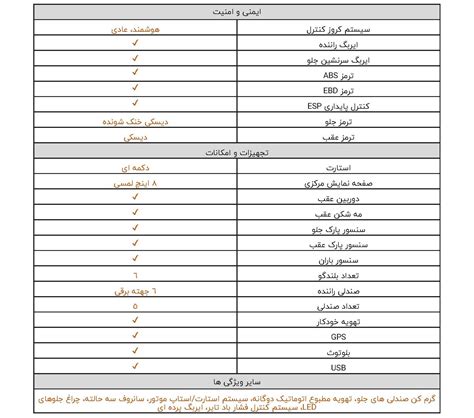 ایمنی و امنیت
سیستم کروز کنترل هوشمند، عادی
ایربگ راننده ✓
ایربگ سرنشین جلو ✓
ترمز ABS ✓
ترمز EBD ✓
کنترل پایداری ESP ✓
ترمز جلو دیسکی خنک شونده
ترمز عقب دیسکی
تجهیزات و امکانات
استارت دکمه ای
صفحه نمایش مرکزی ۸ اینچ لمسی
دوربین عقب ✓
مه شکن عقب ✓
سنسور پارک جلو ✓
سنسور پارک عقب ✓
سنسور باران ✓
تعداد بلندگو ٦
صندلی راننده ٦ جهته برقی
تعداد صندلی ۵
تهویه خودکار ✓
GPS ✓
بلوتوث ✓
USB ✓
سایر ویژگی ها
گرم کن صندلی های جلو، تهویه مطبوع اتوماتیک دوگانه، سیستم استارت/استاپ موتور، سانروف سه حالته، چراغ جلوهای
LED، سیستم کنترل فشار باد تایر، ایربگ پرده ای